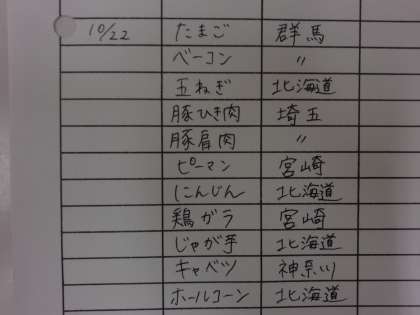 10/22 たまご 群馬
ベーコン 〃
玉ねぎ 北海道
豚ひき肉 埼玉
豚肩肉 〃
ピーマン 宮崎
にんじん 北海道
鶏ガラ 宮崎
じゃが芋 北海道
キャベツ 神奈川
ホールコーン 北海道